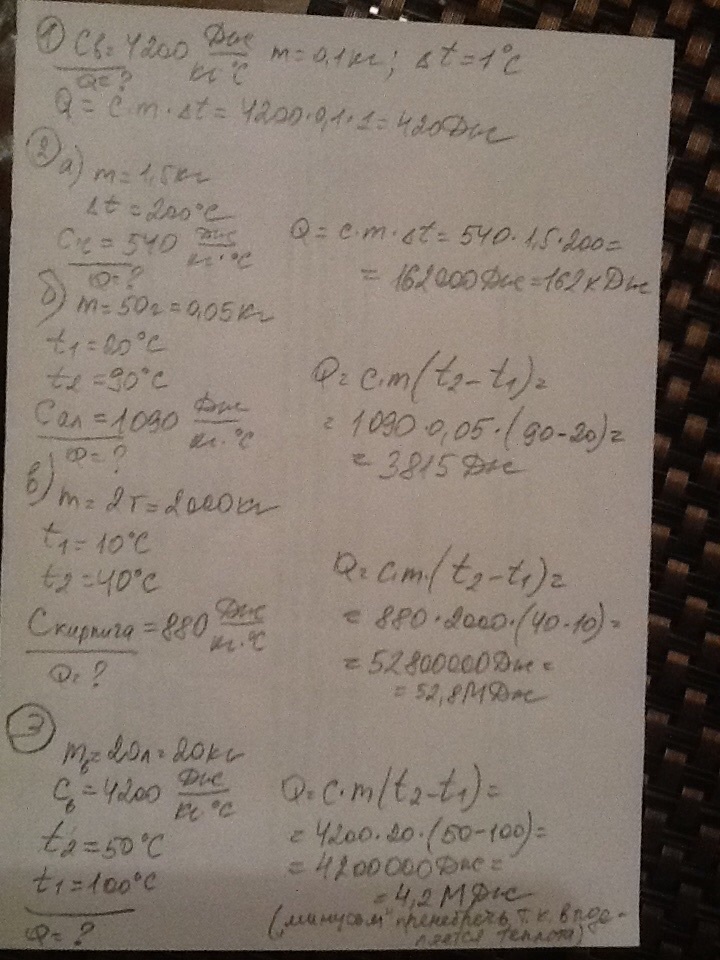 ① Cв = 4200 Дж/кг·°C m = 0,1 кг; Δt = 1°C
Q = ?
Q = c·m·Δt = 4200·0,1·1 = 420 Дж
② а) m = 1,5 кг
Δt = 200°C
Cч = 540 Дж/кг·°C
Q = ?
Q = c·m·Δt = 540·1,5·200 =
= 162000 Дж = 162 кДж
б) m = 50г = 0,05 кг
t1 = 20°C
t2 = 90°C
Cал = 1090 Дж/кг·°C
Q = ?
Q = c·m(t2 – t1) =
= 1090·0,05·(90-20) =
= 3815 Дж
в) m = 2т = 2000 кг
t1 = 10°C
t2 = 40°C
Cкирпича = 880 Дж/кг·°C
Q = ?
Q = c·m·(t2 – t1) =
= 880·2000·(40-10) =
= 52800000 Дж =
= 52,8 МДж
③
mв = 20л = 20 кг
Cв = 4200 Дж/кг·°C
t2 = 50°C
t1 = 100°C
Q = ?
Q = c·m(t2 – t1) =
= 4200·20·(50-100) =
= 4200000 Дж =
= 4,2 МДж
(„минусом" пренебречь, т.к. выде-
ляется теплота)